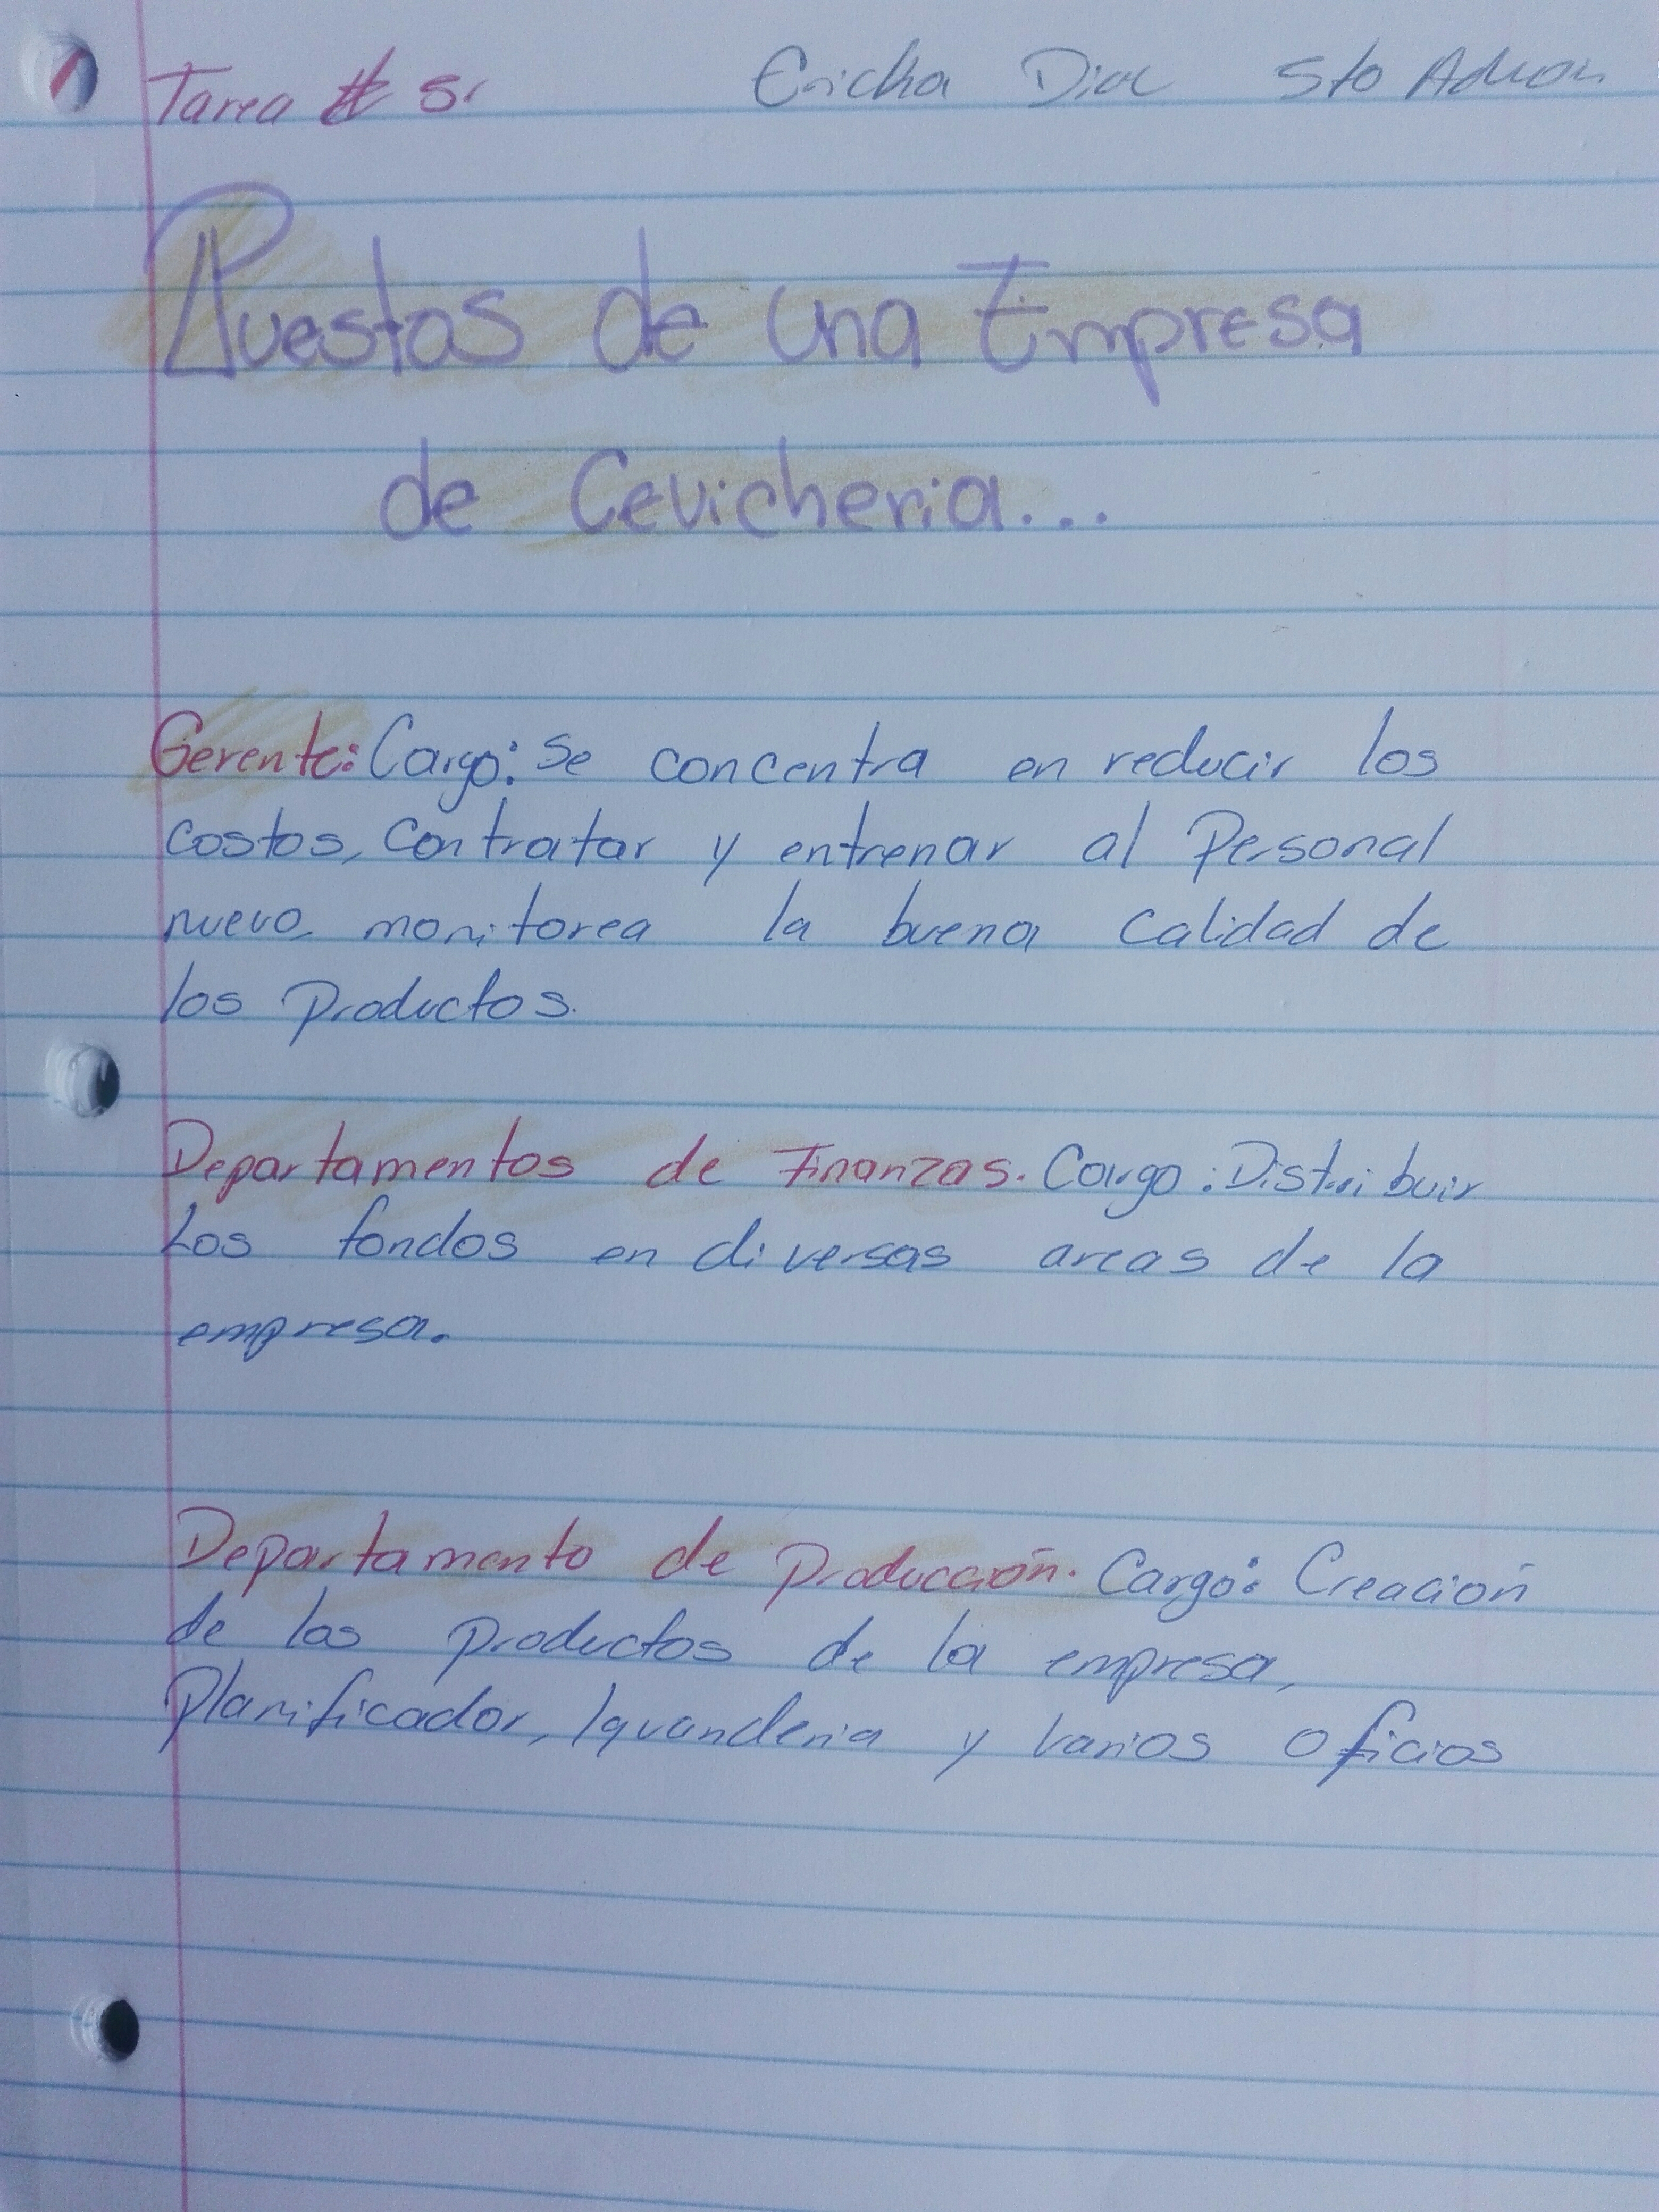 Tarea # 5.
Ericka Diaz 5to Admon
Puestos de una Empresa
de Cevicheria...
Gerente: Cargo: Se concentra en reducir los
costos, contratar y entrenar al Personal
nuevo monitorea la buena calidad de
los Productos.
Departamentos de Finanzas. Cargo: Distribuir
Los fondos en diversas areas de la
empresa.
Departamento de Producción. Cargo: Creación
de los productos de la empresa,
Planificador, lavanderia y varios oficios